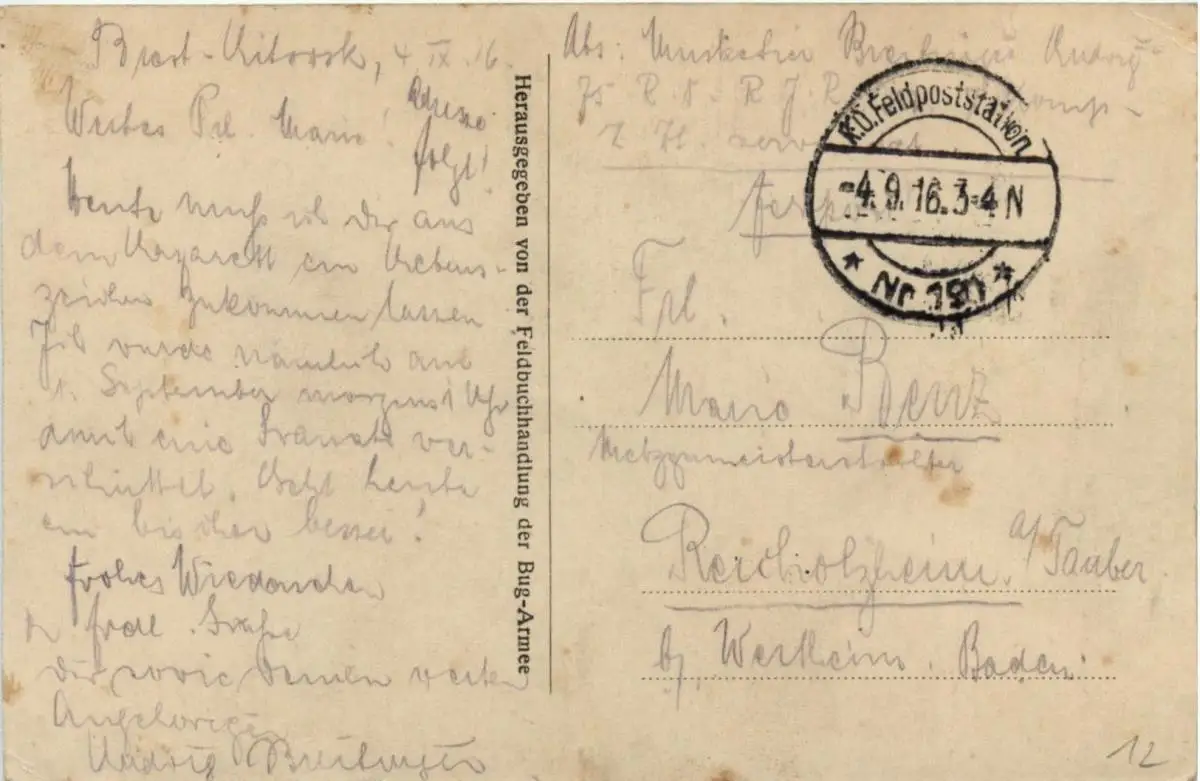 Brest-Litovsk, 4 IX 16.
Wertes Frl. Marie!
Adresse
folgt!
Heute muß ich Dir aus
dem Lazarett ein Lebens-
zeichen zukommen lassen
Ich wurde nämlich am
1. September morgens 1 Uhr
durch eine Granate ver-
schüttet. Geht heute
ein bischen besser!
Frohes Wiedersehen
u. frdl. Grüße
Dir sowie Deinen werten
Angehörigen
Ludwig Breitinger
Herausgegeben von der Feldbuchhandlung der Bug-Armee
Abs: Musketier Breitinger Ludwig
R. J. R. Komp.
z. Zt.
K.D. Feldpoststation
-4.9.16.3-4 N
* Nr. 191 *
Frl.
Marie Benz
Metzgermeisterstochter
Reicholzheim a/Tauber
b/ Wertheim. Baden.
12